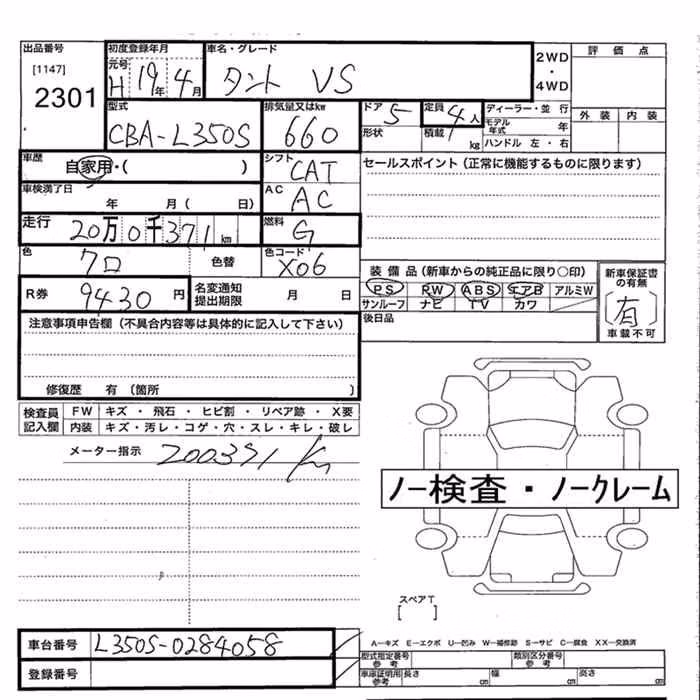 出品番号 初度登録年月 車名・グレード 評価点
[1147] 元号 2WD
2301 H 19年 4月 タント VS ・
4WD
外装 内装
型式 排気量又はkw ドア 定員 ディーラー・並行
CBA-L350S 660 5 4人 モデル年式 年
形状 積載 kg ハンドル 左・右
車歴 シフト セールスポイント (正常に機能するものに限ります)
自家用・( ) CAT
車検満了日 AC
年 月( 日) AC
走行 燃料
20万0千371km G
色 色替 色コード
クロ X06
装備品 (新車からの純正品に限り○印) 新車保証書の有無
PS PW ABS エアB アルミW
サンルーフ ナビ TV カワ [有]
車載不可
R券 9430円 名変通知提出期限 月 日
後日品
注意事項申告欄 (不具合内容等は具体的に記入して下さい)
修復歴 有 (箇所 )
検査員記入欄 FW キズ・飛石・ヒビ割・リペア跡・X要
内装 キズ・汚レ・コゲ・穴・スレ・キレ・破レ
メーター指示 200371 km
ノー検査・ノークレーム
スペアT
[ ]
車台番号 L350S-0284058
A-キズ E-エクボ U-凹み W-補修跡 S-サビ C-腐食 XX-交換済
型式指定番号 参考 類別区分番号 参考
登録番号
車庫証明用 参考 長さ cm 幅 cm 高さ cm